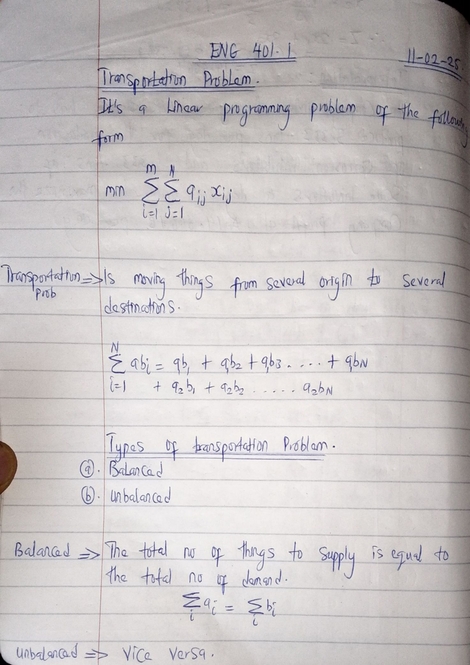 ENG 401.1
11-02-25
Transportation Problem.
It's a Linear programming problem of the following
form
min ∑_{i=1}^{m} ∑_{j=1}^{N} a_{ij} x_{ij}
Transportation Prob => Is moving things from several origin to several
destinations.
∑_{i=1}^{N} ab_i = ab_1 + ab_2 + ab_3 . . . . + ab_N
+ a_2b_1 + a_2b_2 . . . . . a_2b_N
Types of transportation Problem.
(a). Balanced
(b). Unbalanced
Balanced => The total no of things to supply is equal to
the total no of demand.
∑_i a_i = ∑_i b_i
Unbalanced => Vice versa.